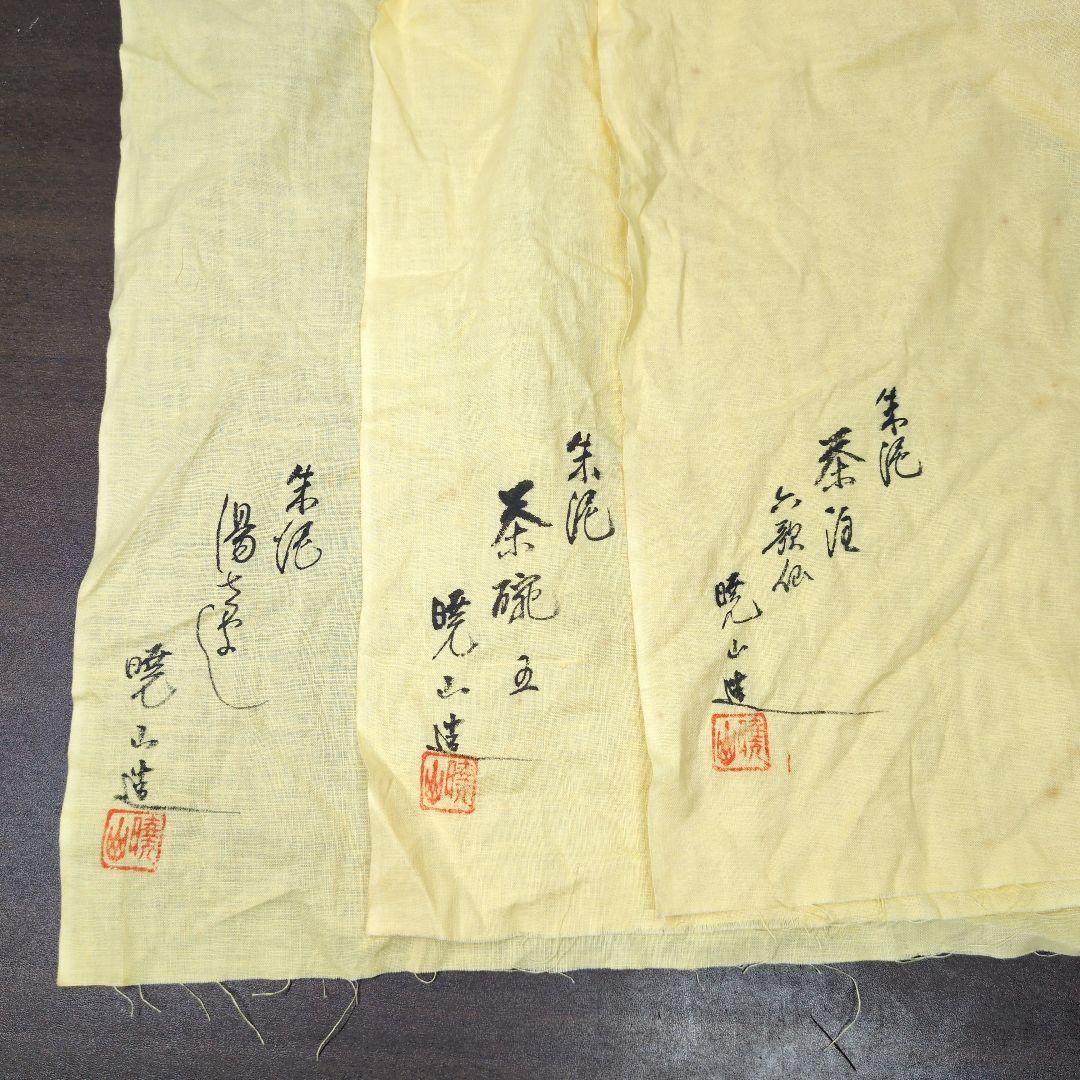 朱泥
茶注
六歌仙
暁山造
暁山
朱泥
茶碗 五
暁山造
暁山
朱泥
湯さまし
暁山造
暁山